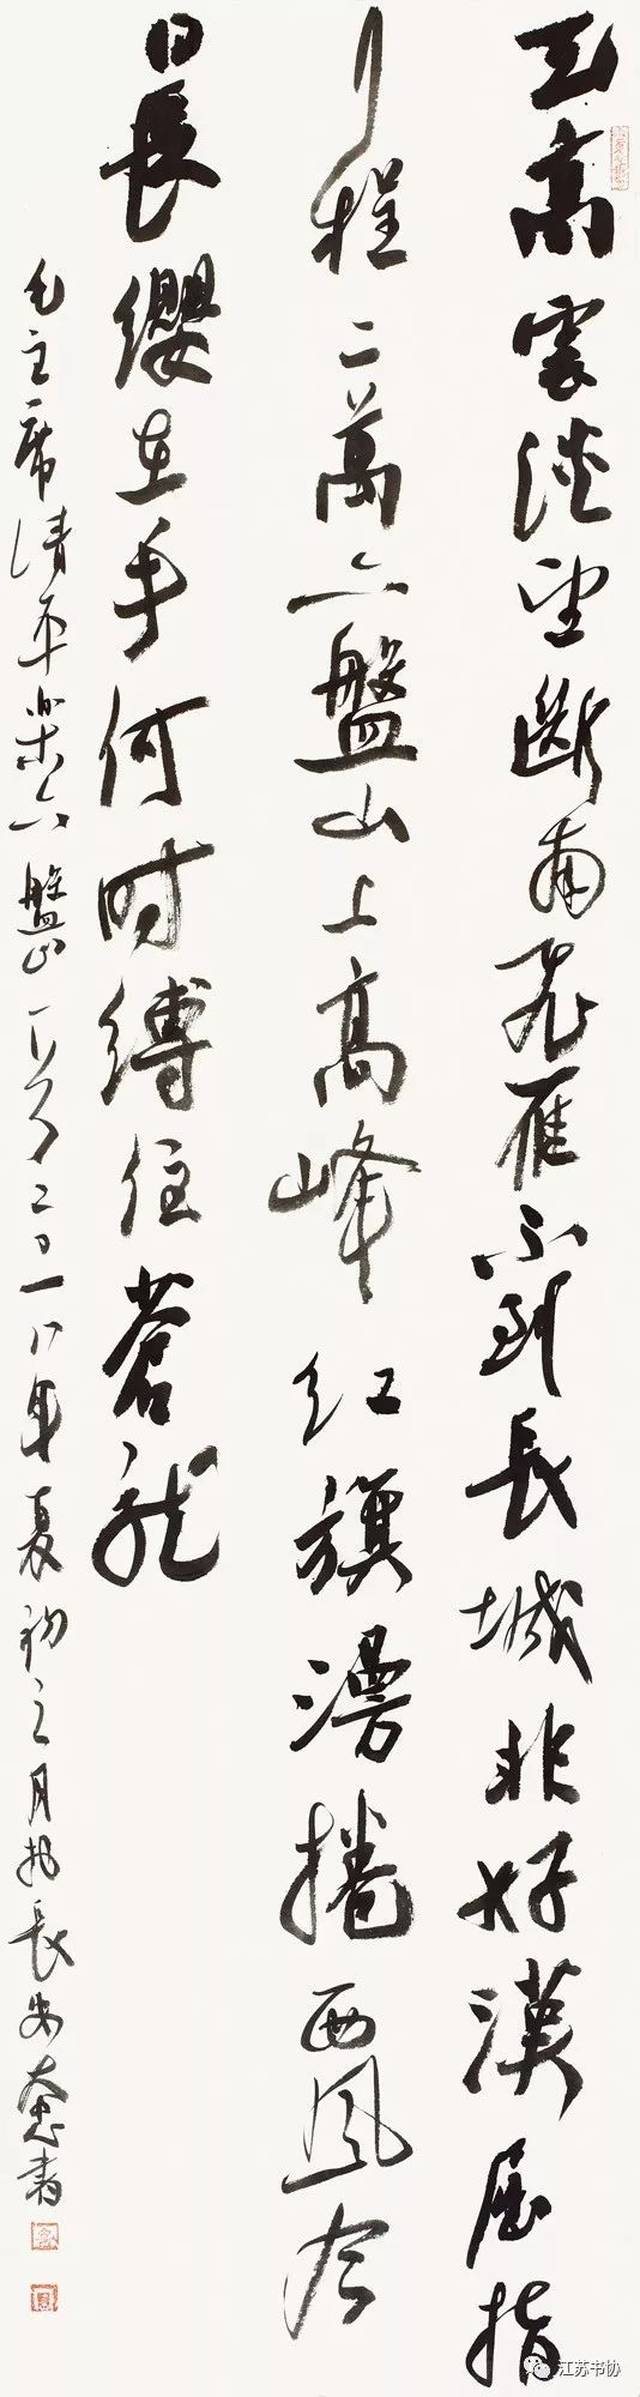 天高雲淡望斷南飛雁不到長城非好漢屈指
行程二萬六盤山上高峰紅旗漫捲西風今
日長纓在手何時縛住蒼龍
毛主席清平樂六盤山一首二〇一八年夏初之月於長安書
江苏书协